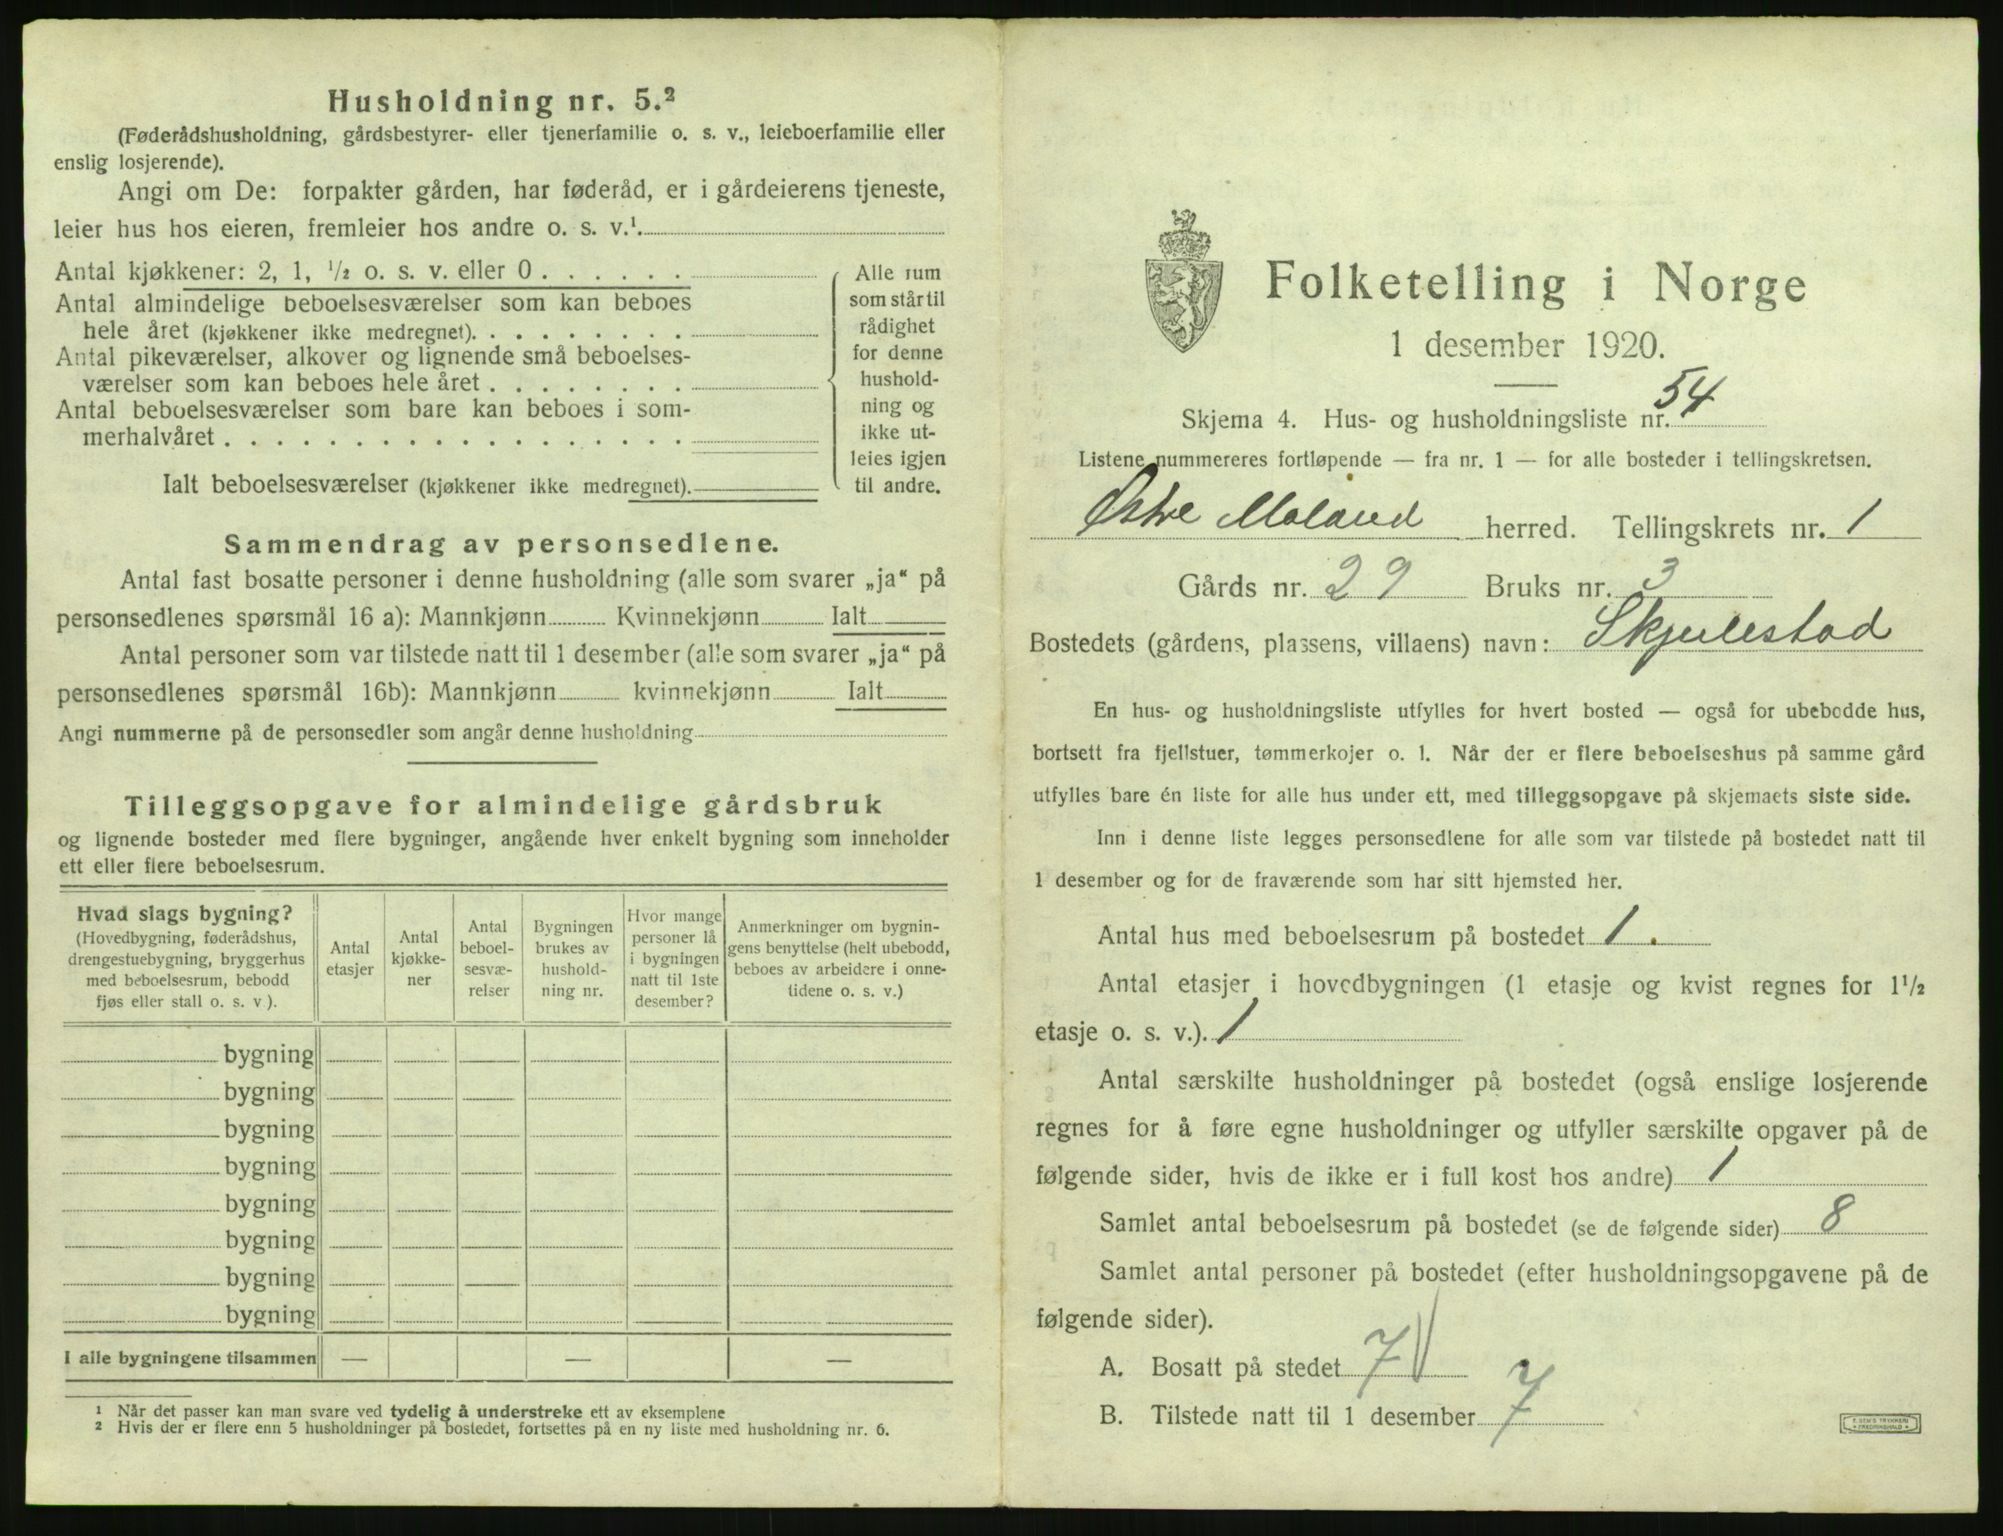 Husholdning nr. 5.²
(Føderådshusholdning, gårdsbestyrer- eller tjenerfamilie o. s. v., leieboerfamilie eller
enslig losjerende).
Angi om De: forpakter gården, har føderåd, er i gårdeierens tjeneste,
leier hus hos eieren, fremleier hos andre o. s. v.¹.
Antal kjøkkener: 2, 1, ½ o. s. v. eller 0 . . . . . .
Antal almindelige beboelsesværelser som kan beboes
hele året (kjøkkener ikke medregnet). . . . . . . . .
Antal pikeværelser, alkover og lignende små beboelses-
værelser som kan beboes hele året . . . . . . . .
Antal beboelsesværelser som bare kan beboes i som-
merhalvåret . . . . . . . . . . . . . . . . . .
Ialt beboelsesværelser (kjøkkener ikke medregnet).
Alle rum
som står til
rådighet
for denne
hushold-
ning og
ikke ut-
leies igjen
til andre.
Sammendrag av personsedlene.
Antal fast bosatte personer i denne husholdning (alle som svarer „ja“ på
personsedlenes spørsmål 16 a): Mannkjønn Kvinnekjønn Ialt
Antal personer som var tilstede natt til 1 desember (alle som svarer „ja“ på
personsedlenes spørsmål 16b): Mannkjønn kvinnekjønn Ialt
Angi nummerne på de personsedler som angår denne husholdning
Tilleggsopgave for almindelige gårdsbruk
og lignende bosteder med flere bygninger, angående hver enkelt bygning som inneholder
ett eller flere beboelsesrum.
Hvad slags bygning?
(Hovedbygning, føderådshus,
drengestuebygning, bryggerhus
med beboelsesrum, bebodd
fjøs eller stall o. s. v ).
Antal
etasjer
Antal
kjøkke-
ner
Antal
beboel-
sesvæ-
relser
Bygningen
brukes av
hushold-
ning nr.
Hvor mange
personer lå
i bygningen
natt til 1ste
desember?
Anmerkninger om bygnin-
gens benyttelse (helt ubebodd,
beboes av arbeidere i onne-
tidene o. s. v.)
bygning
bygning
bygning
bygning
bygning
bygning
bygning
bygning
I alle bygningene tilsammen — — —
¹ Når det passer kan man svare ved tydelig å understreke ett av eksemplene
² Hvis der er flere enn 5 husholdninger på bostedet, fortsettes på en ny liste med husholdning nr. 6.
Folketelling i Norge
1 desember 1920.
Skjema 4. Hus- og husholdningsliste nr. 54
Listene nummereres fortløpende — fra nr. 1 — for alle bosteder i tellingskretsen.
Østre Moland herred. Tellingskrets nr. 1
Gårds nr. 29 Bruks nr. 3
Bostedets (gårdens, plassens, villaens) navn: Skjulestad
En hus- og husholdningsliste utfylles for hvert bosted — også for ubebodde hus,
bortsett fra fjellstuer, tømmerkojer o. l. Når der er flere beboelseshus på samme gård
utfylles bare én liste for alle hus under ett, med tilleggsopgave på skjemaets siste side.
Inn i denne liste legges personsedlene for alle som var tilstede på bostedet natt til
1 desember og for de fraværende som har sitt hjemsted her.
Antal hus med beboelsesrum på bostedet 1.
Antal etasjer i hovedbygningen (1 etasje og kvist regnes for 1½
etasje o. s. v.). 1
Antal særskilte husholdninger på bostedet (også enslige losjerende
regnes for å føre egne husholdninger og utfyller særskilte opgaver på de
følgende sider, hvis de ikke er i full kost hos andre) 1
Samlet antal beboelsesrum på bostedet (se de følgende sider) 8
Samlet antal personer på bostedet (efter husholdningsopgavene på de
følgende sider).
A. Bosatt på stedet 7
B. Tilstede natt til 1 desember 7